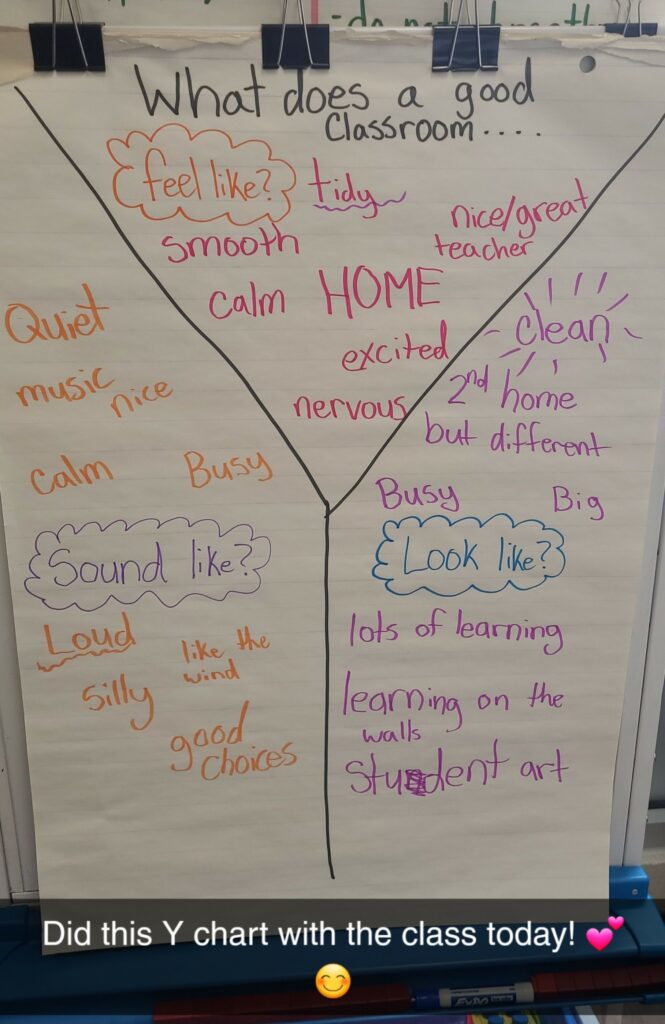 What does a good
Classroom....
feel like?
tidy
nice/great
teacher
smooth
calm HOME
excited
nervous
Quiet
music
nice
calm Busy
Sound like?
Loud
like the
wind
silly
good
choices
clean
2nd home
but different
Busy Big
Look like?
lots of learning
learning on the
walls
student art
Did this Y chart with the class today! 💕
😊
EXPO